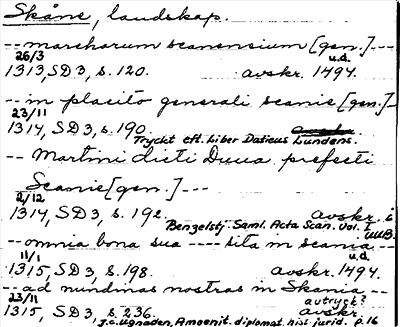 Skåne, landskap.
-- marcharum scanensium [gen.] ---
26/3 u.d.
1313, SD 3, s. 120. avskr. 1494.
-- in placito generali scanie [gen.] --
23/11
1314, SD 3, s. 190.
Tryckt eft. Liber Daticus Lundens.
-- Martini dicti Duua prefecti
Scanie [gen.] ---
2/12
1314, SD 3, s. 192. avskr. i
Benzelstj. Saml. Acta Scan. Vol. I UUB.
-- omnia bona sua ---- sita in scania --
11/1 u.d.
1315, SD 3, s. 198. avskr. 1494.
-- ad nundinas nostras in Skania --
23/11 avtryck?
1315, SD 3, s. 236. avskr.
J.C. Ugnaden, Amoenit. diplomat. hist. jurid. p. 16